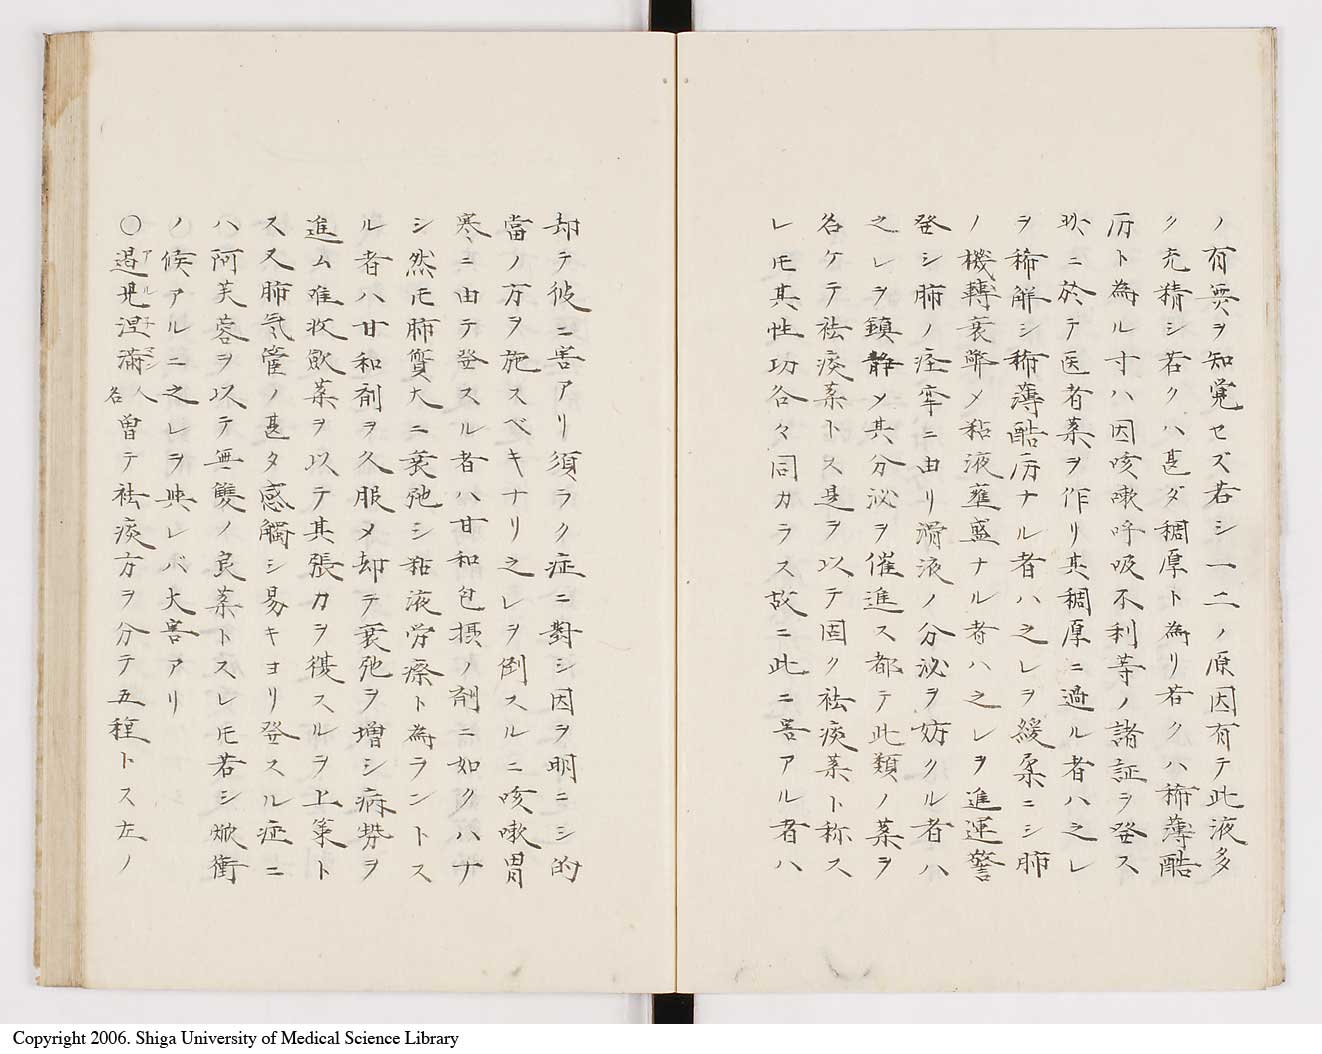 ノ有無ヲ知覚セズ若シ一二ノ原因有テ此液多
ク充積シ若クハ甚ダ稠厚ト為リ若クハ稀薄酷
厉ト為ル寸ハ因咳嗽呼吸不利等ノ諸証ヲ発ス
於テ医者薬ヲ作リ其稠厚ニ過ル者ハ之レ
ヲ稀解シ稀薄酷厉ナル者ハ之レヲ緩柔ニシ肺
ノ機轉衰弊メ粘液壅盛ナル者ハ之レヲ進運警
発シ肺ノ痙牢ニ由リ滑液ノ分泌ヲ妨クル者ハ
之レヲ鎮静メ其分泌ヲ催進ス都テ此類ノ薬ヲ
名ケテ袪痰薬トス是ヲ以テ固ク袪痰薬ト称ス
レ𪜈其性功各々同カラス故ニ此ニ害アル者ハ
却テ彼ニ害アリ須ラク症ニ對シ因ヲ明ニシ的
當ノ方ヲ施スベキナリ之レヲ倒スルニ咳嗽冒
寒ニ由テ発スル者ハ甘和包摂ノ剤ニ如クハナ
シ然𪜈肺質大ニ衰弛シ粘液労瘵ト為ラントス
ル者ハ甘和剤ヲ久服メ却テ衰弛ヲ増シ病勢ヲ
進ム唯收歛薬ヲ以テ其張力ヲ復スルヲ上策ト
ス又肺気管ノ甚タ感觸シ易キヨリ発スル症ニ
ハ阿芙蓉ヲ以テ無雙ノ良薬トスレ𪜈若シ焮衝
ノ候アルニ之レヲ與レバ大害アリ
〇遏児涅満アルネマン人名曽テ袪痰方ヲ分テ五種トス左ノ
Copyright 2006. Shiga University of Medical Science Library